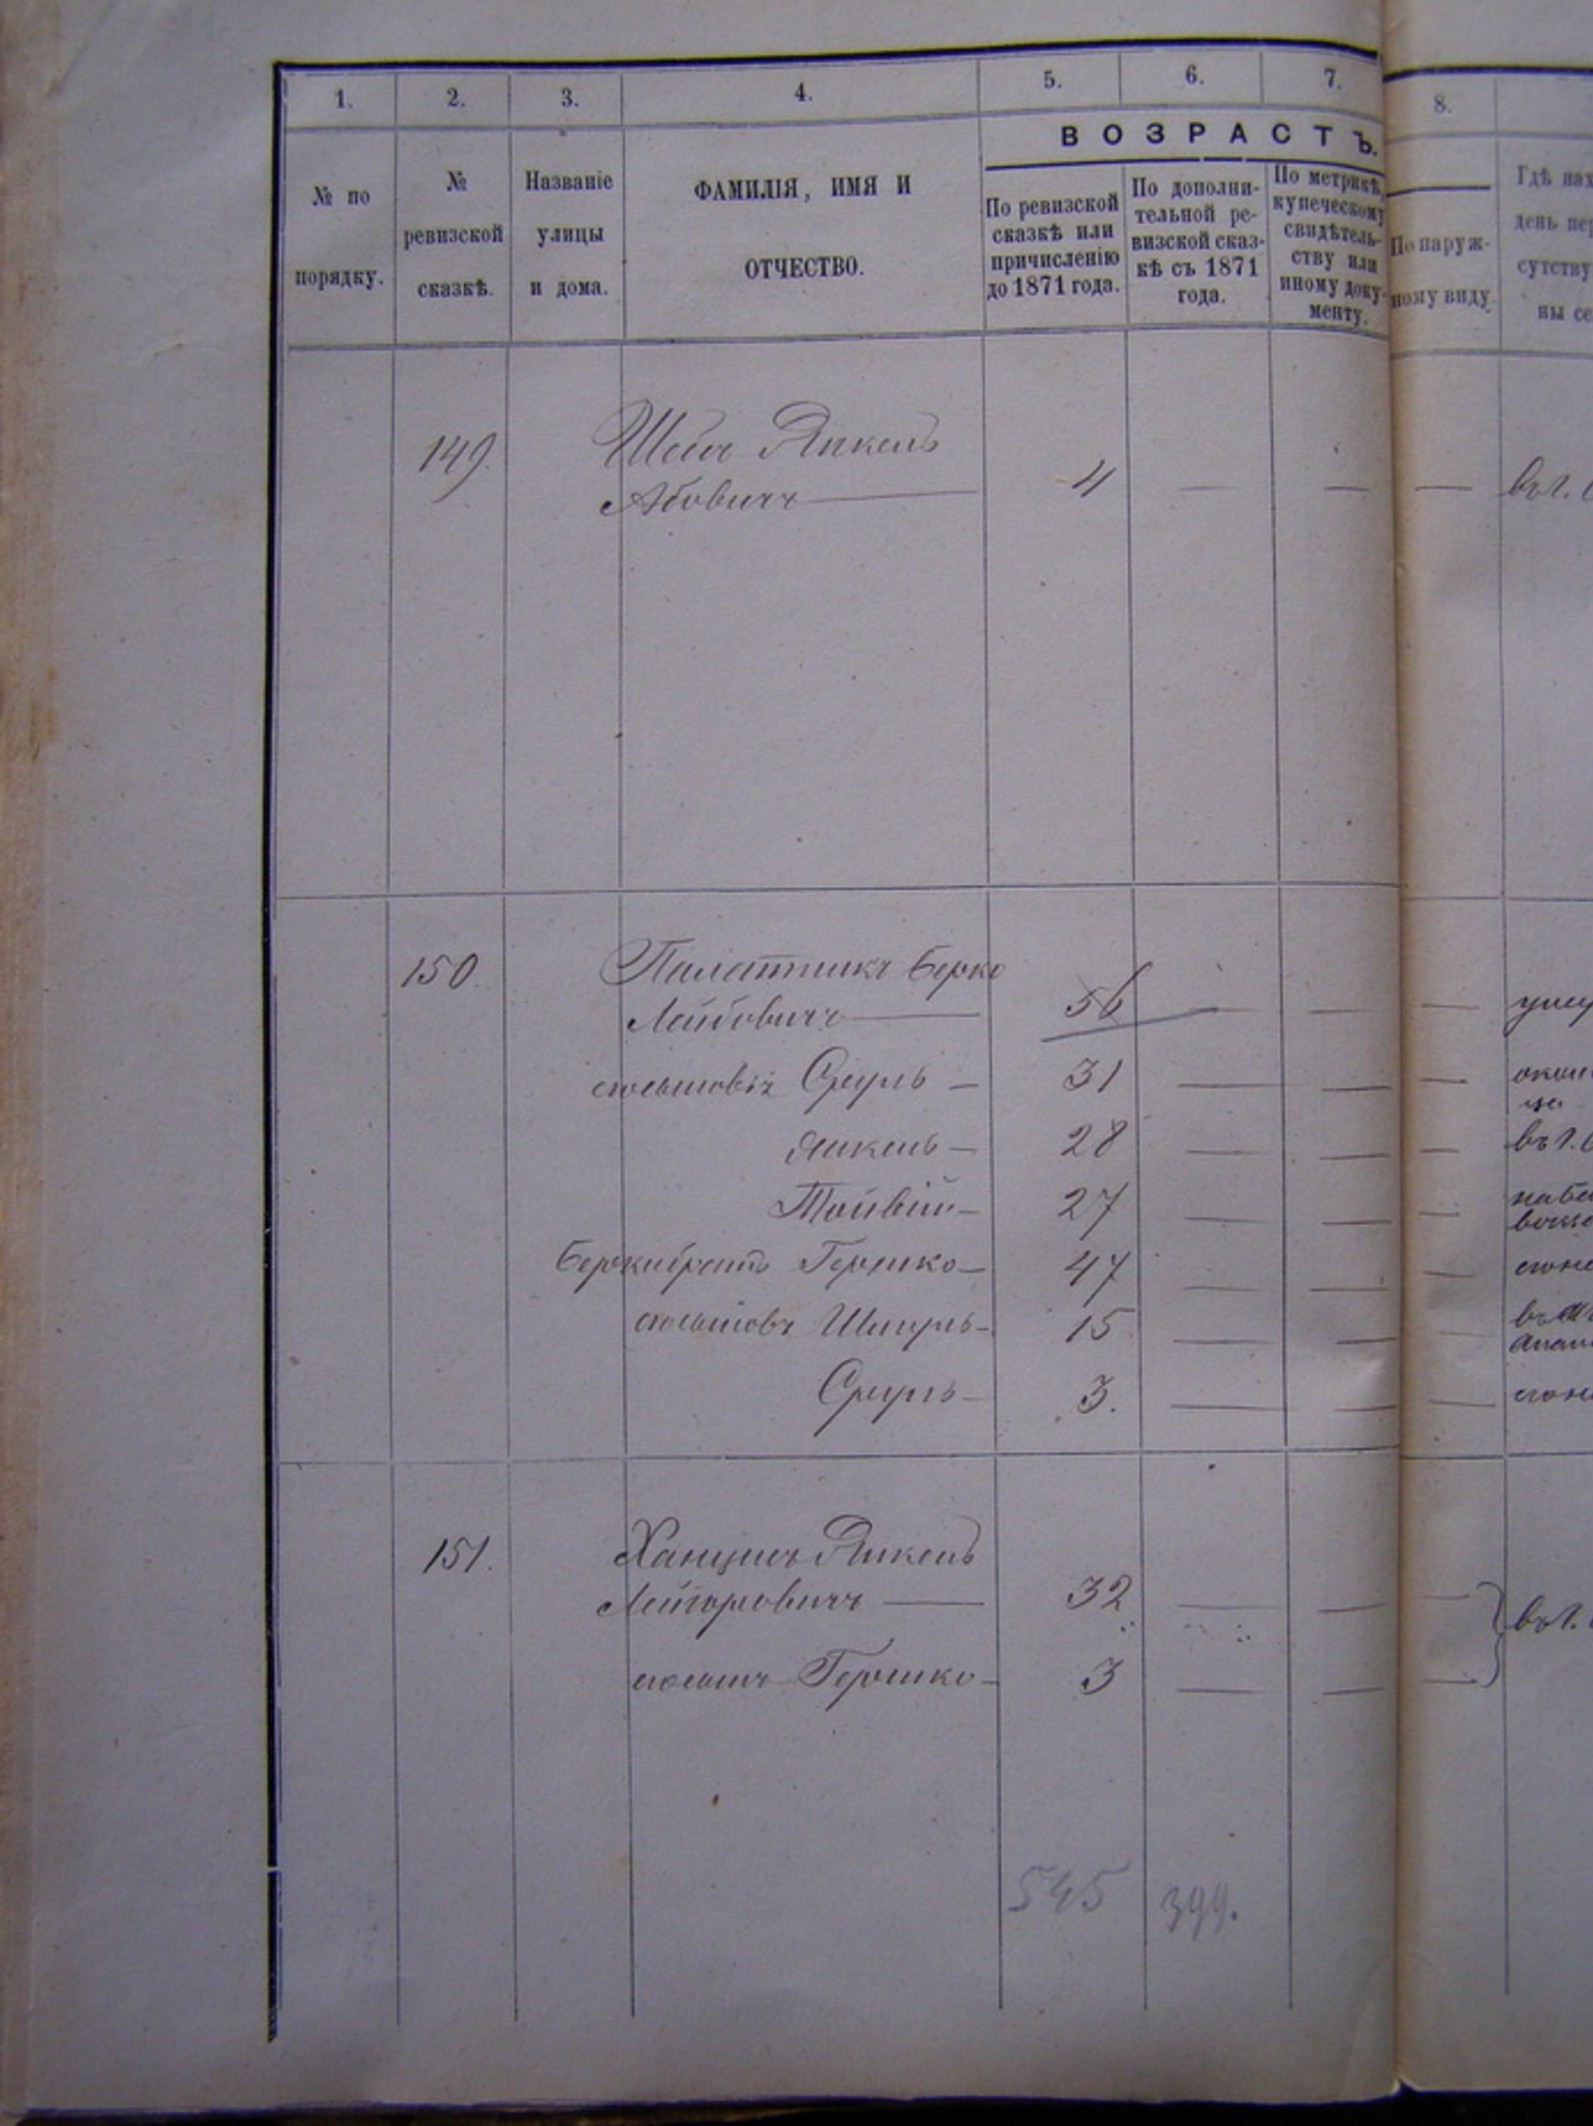 1. 2. 3. 4. 5. 6. 7. 8.
ВОЗРАСТЪ.
№ по
порядку.
№
ревизской
сказкѣ.
Названіе
улицы
и дома.
ФАМИЛІЯ, ИМЯ И
ОТЧЕСТВО.
По ревизской
сказкѣ или
причисленію
до 1871 года.
По дополни-
тельной ре-
визской сказ-
кѣ съ 1871
года.
По метрикѣ,
купеческому
свидѣтель-
ству или
иному доку-
менту.
По наруж-
ному виду.
Гдѣ нах
день пер
сутству
ны се
149. Янкель
Абовичъ — 4 — — — въ г.
150. Палатникъ Берко
Лейбовичъ — 56 — — —
сыновья Сруль — 31 — — —
Янкель — 28 — — — въ г.
Тойвій — 27 — — —
Берки братъ Гершко — 47 — — —
сыновья Шмуль — 15 — — —
Сруль — 3. — — —
151. Янкель
— 32 — — — въ г.
сынъ Гершко — 3 — — —
545 399.